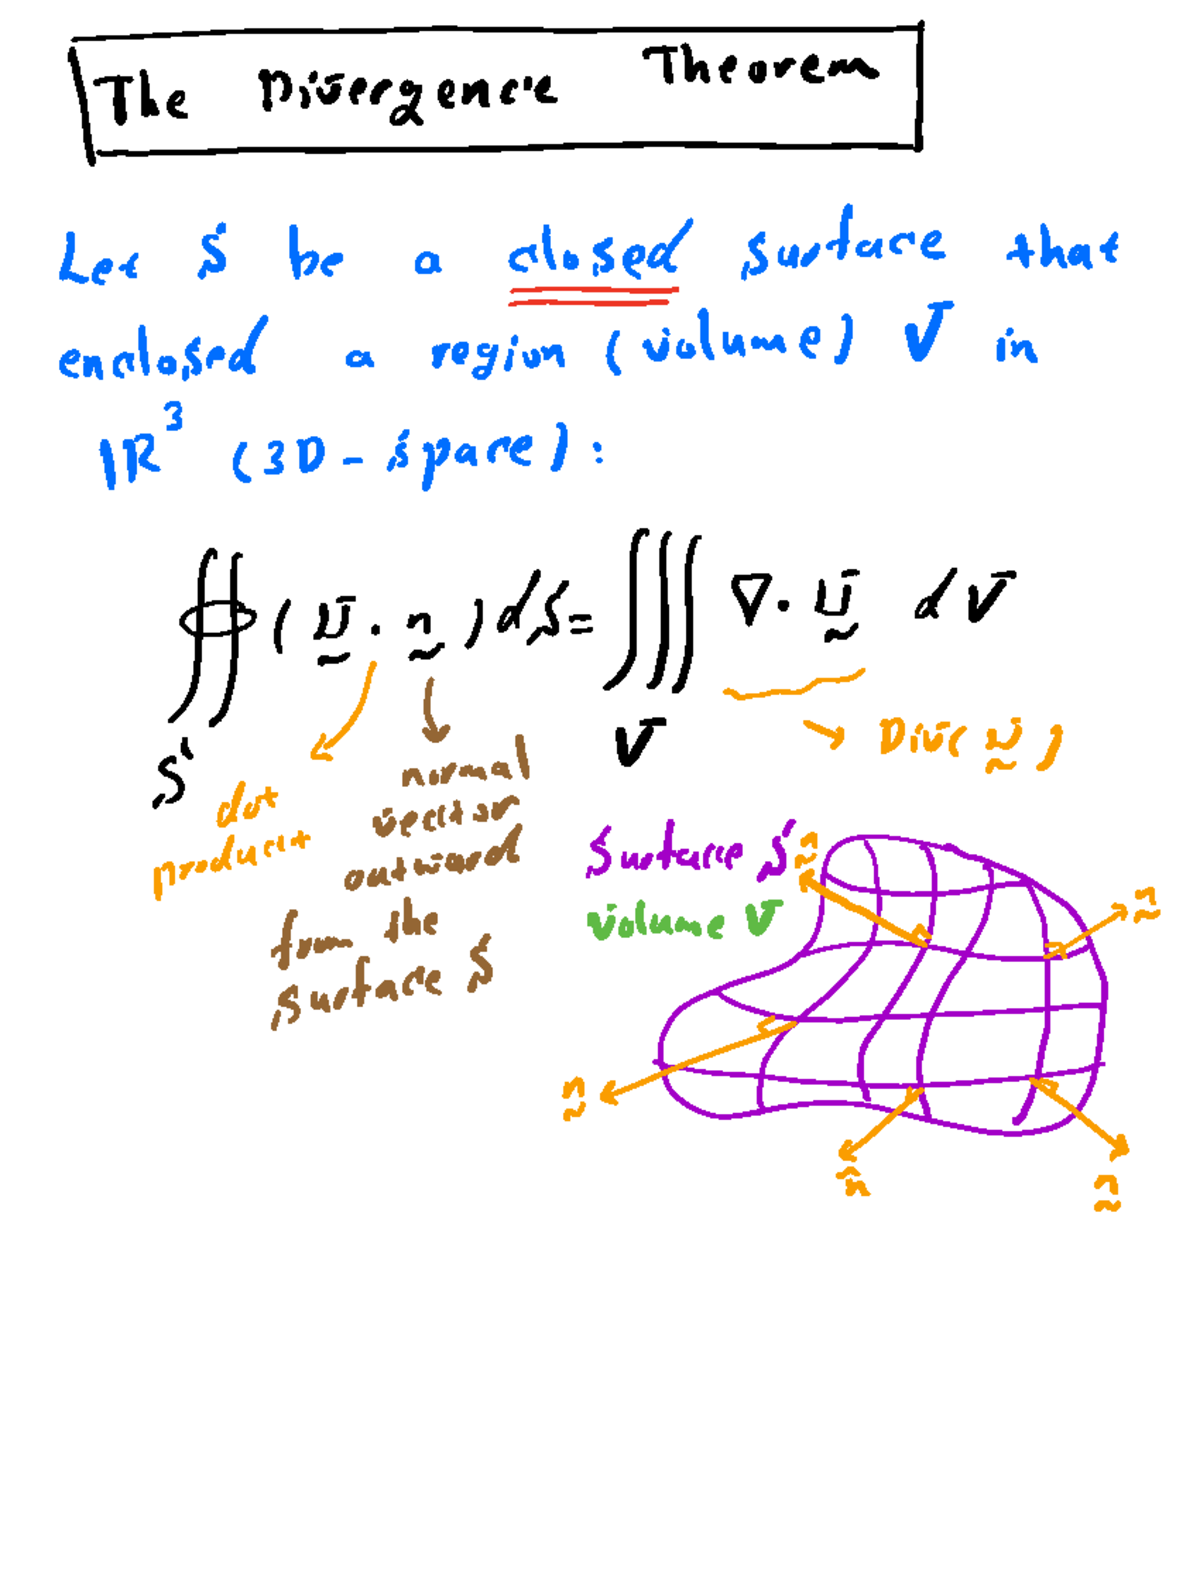 The Divergence Theorem
Let S be a closed surface that
enclosed a region (volume) V in
ℝ³ (3D - space):
∯ ( v̰ · n̰ ) dS = ∭ ∇ · v̰ dV
S
V
→ Div( v̰ )
dot
product
normal
vector
outward
from the
surface S
surface S
volume V
n̰
n̰
n̰
n̂
n̰